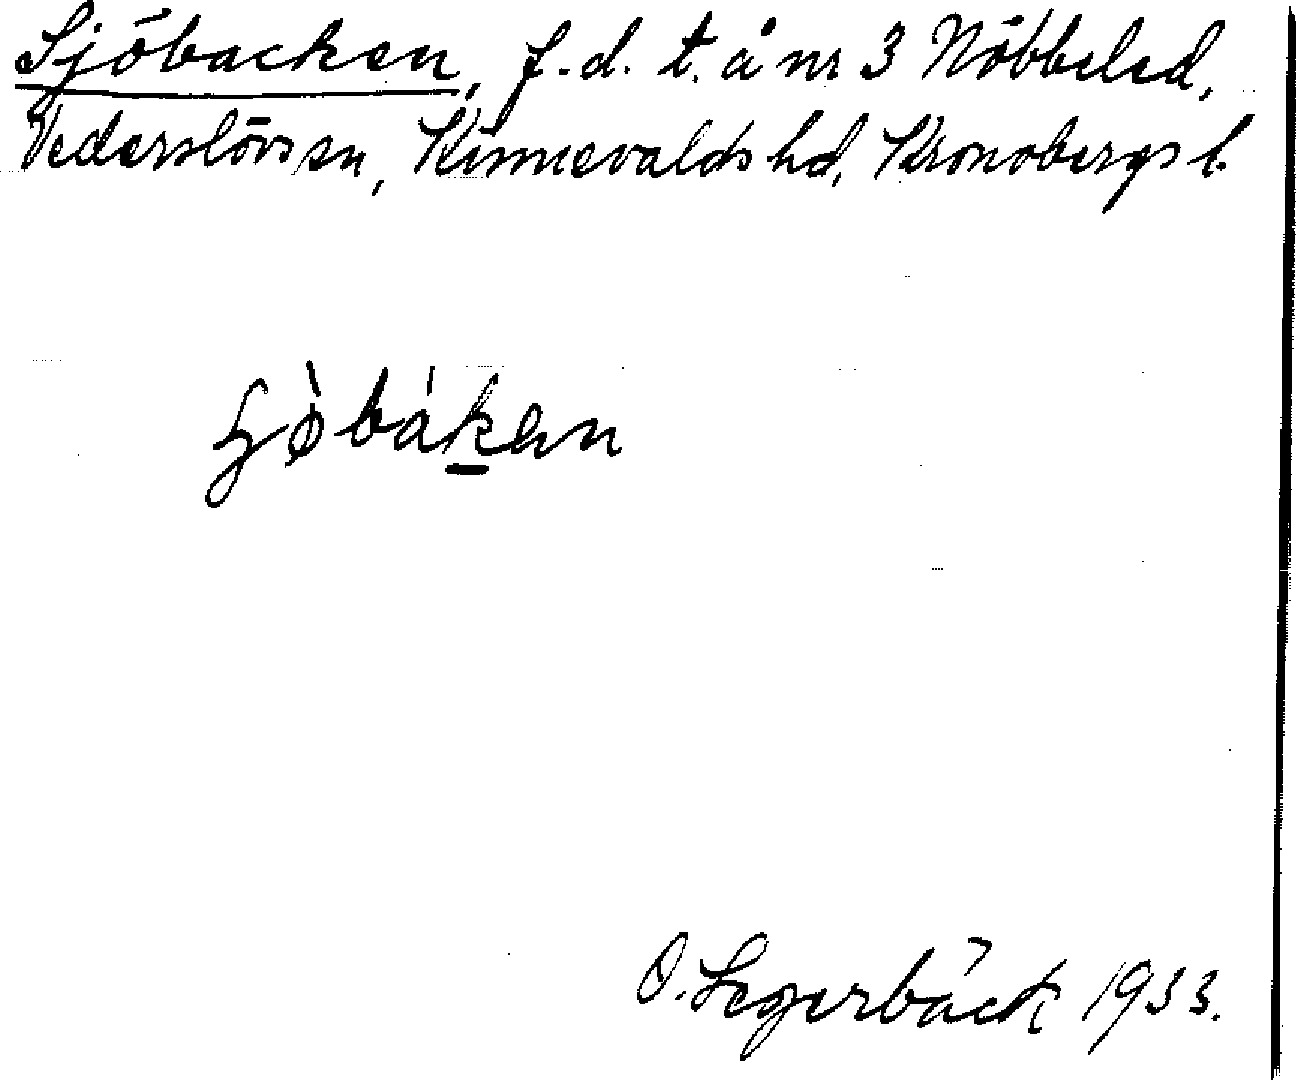 Sjöbacken, f.d. t. å nr 3 Nöbbeled,
Vederslövs sn, Kinnevalds hd, Kronobergs l.
ɧø̀bák̠en
O. Segerbäck 1933.